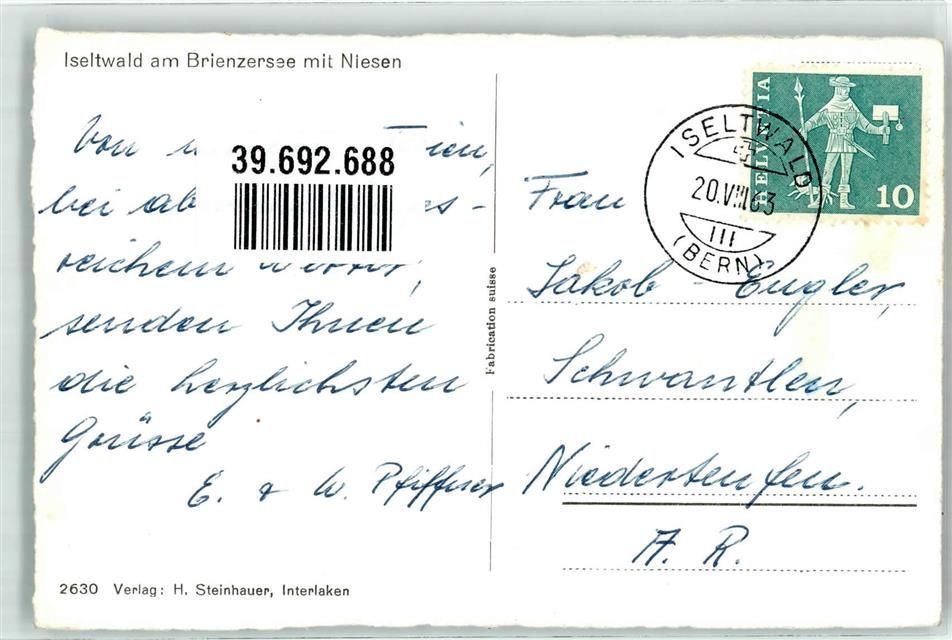 Iseltwald am Brienzersee mit Niesen
Von
39.692.688
bei ab
reichem
senden Ihnen
die herzlichsten
Grüsse
E. & W. Pfiffner
2630 Verlag: H. Steinhauer, Interlaken
Fabrication suisse
HELVETIA
10
ISELTWALD
20.VIII.63
III
(BERN)
Frau
Jakob - Engler,
Schwantlen,
Niederteufen.
A. R.